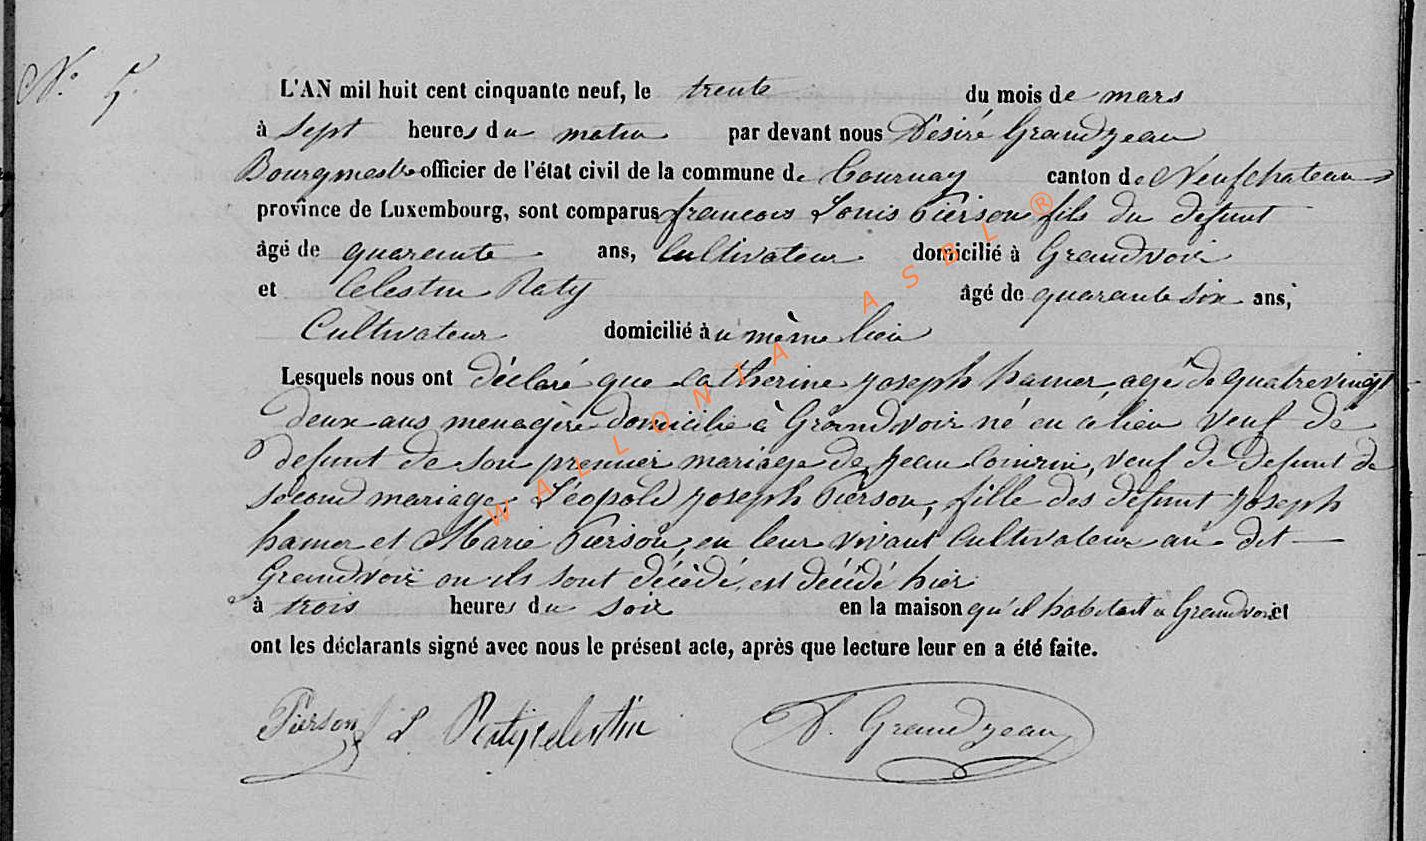 N.° 5.
L'AN mil huit cent cinquante neuf, le trente du mois de mars
à Sept heures du matin par devant nous Désiré Grandjean
Bourgmestre officier de l'état civil de la commune de Tournay canton de Neufchateau
province de Luxembourg, sont comparus francois Louis Pierson fils du defunt
âgé de quarante ans, Cultivateur domicilié à Grandvoir
et Celestin Raty âgé de quarante six ans,
Cultivateur domicilié au même lieu
Lesquels nous ont déclaré que Catherine joseph hamer, agé de quatre vingt
deux ans menagère domicilié à Grandvoir né en ce lieu veuf de
defunt de son premier mariage de jean veuf de defunt de
second mariage Léopold joseph Pierson, fille des défunt joseph
hamer et Marie Pierson, en leur vivant Cultivateur au dit
Grandvoir ou ils sont décèdé, est décédé hier
à trois heures du soir en la maison qu'il habitait à Grandvoir et
ont les déclarants signé avec nous le présent acte, après que lecture leur en a été faite.
Pierson f L Raty celestin D. Grandjean
WALLONIA ASBL ®